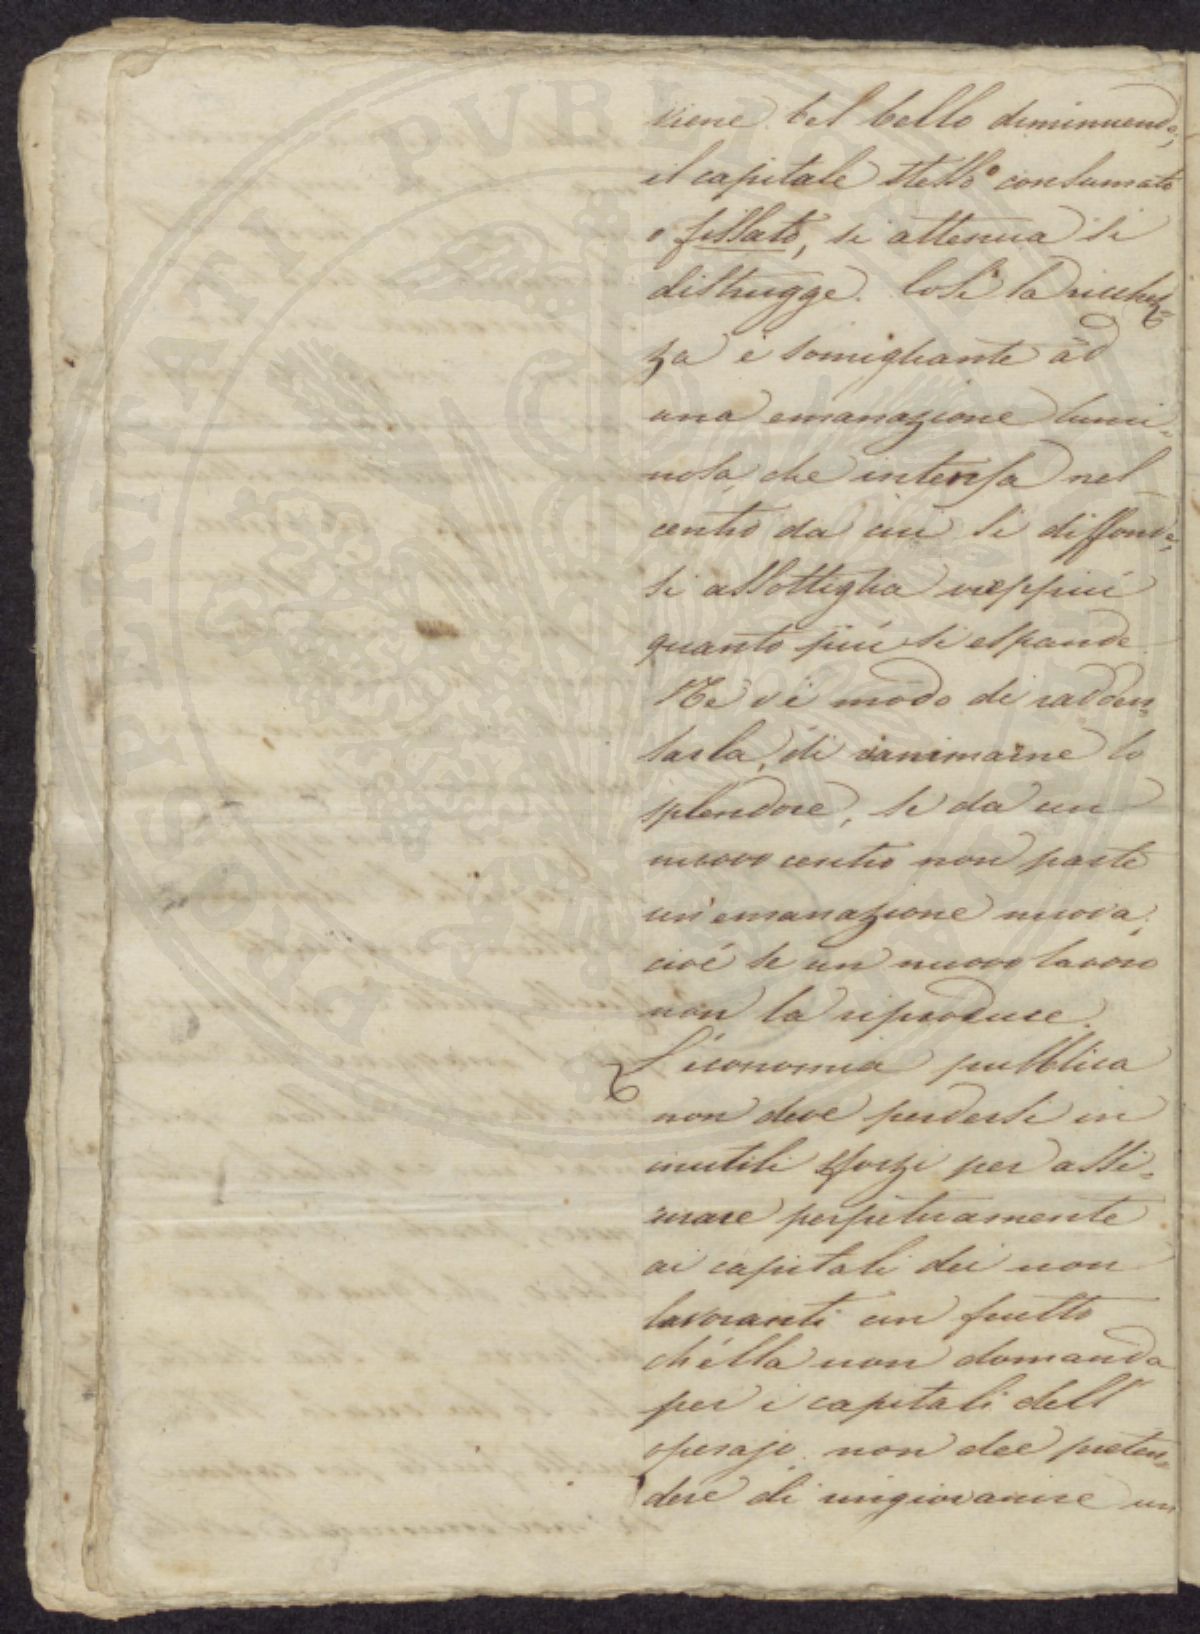 viene bel bello diminuendo,
il capitale stesso consumato
o fissato, si attenua si
distrugge. Così la ricchez=
za è somigliante ad
una emanazione lumi=
nosa, che intensa nel
centro da cui si diffonde,
si assottiglia vieppiù
quanto più si espande.
Nè v'è modo di radden=
sarla, di rianimarne lo
splendore, se da un
nuovo centro non parte
un'emanazione nuova;
cioé se un nuovo lavoro
non la riproduce.
L'economia pubblica
non deve perdersi in
inutili sforzi per assi=
curare perpetuamente
ai capitali dei non
lavoranti un frutto
ch'élla non domanda
per i capitali dell'
operajo. non dee preten=
dere di ringiovanire un